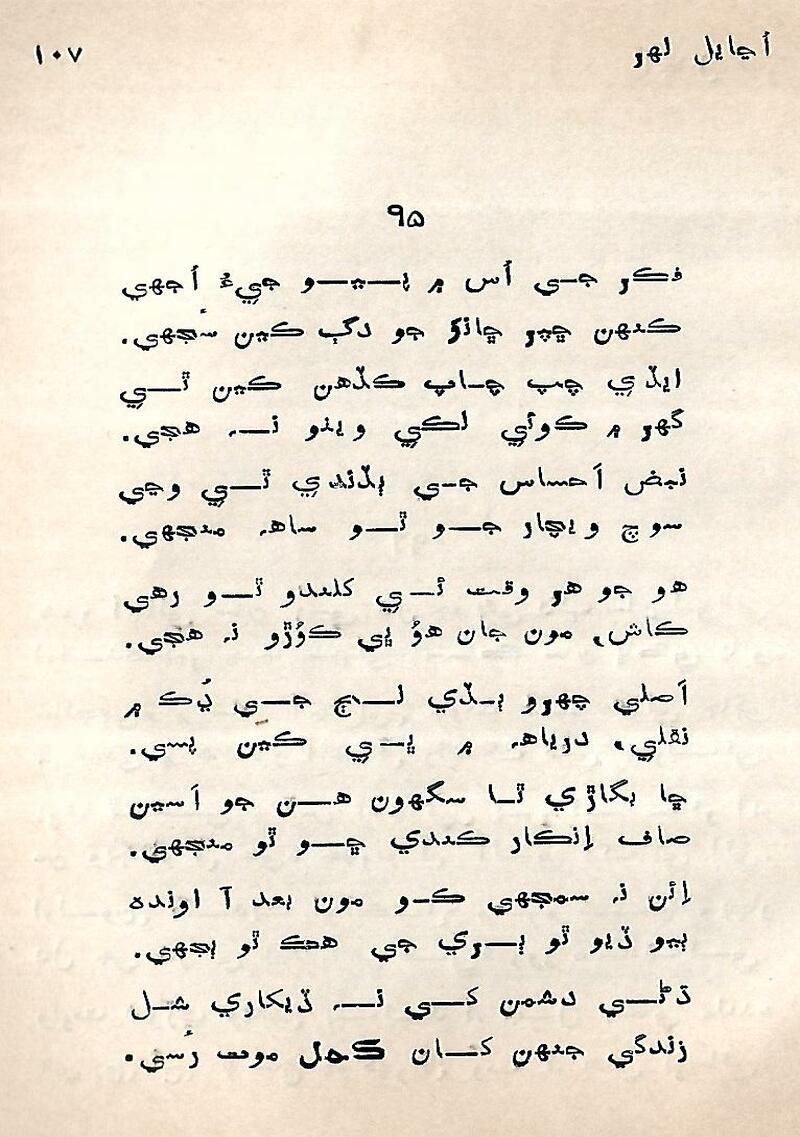 اُڃايل لهر ١٠٧
٩٥
فڪر جي اُس ۾ پيو جيءُ اُجهي
ڪنهن ڇپر ڇانوَ جو دڳ ڪين سُجهي.
ايڏي چپ چاپ ڪڏهن ڪين ٿي
گهر ۾ ڪوئي لڪي ويٺو نہ هجي.
نبض احساس جي ٻڏندي ٿي وڃي
سوچ ويچار جو ٿو ساهہ منجهي.
هو جو هر وقت ئي کلندو ٿو رهي
ڪاش، مون جان هُو ٻي ڪُوڙو نہ هجي.
اَصلي چهرو ٻڏي لڄ جي ڍُڪ ۾
نقلي، درياهہ ۾ ٻي ڪين پسي.
ڇا بگاڙي ٿا سگهون هن جو اَسين
صاف اِنڪار ڪندي ڇو ٿو منجهي.
اِئن نہ سمجهي ڪو مون بعد آ اونده
ٻيو ڏيو ٿو ٻري جي هڪ ٿو ٻجهي.
ڌڻي دشمن کي نہ ڏيکاري شل
زندگي جنهن کان کهل موت رُسي.